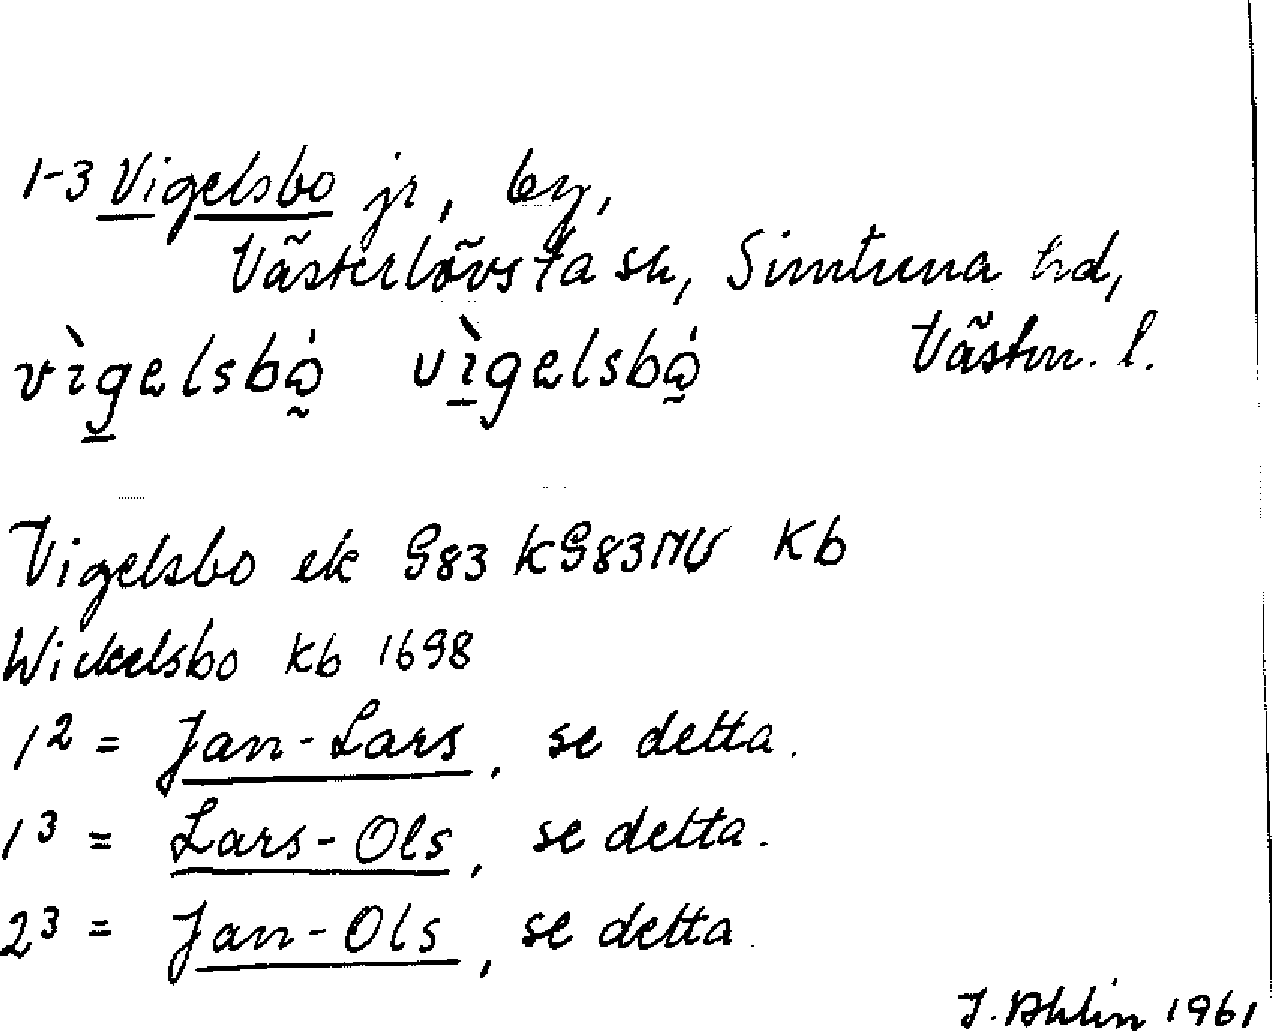 1-3 Vigelsbo jr, by,
Västerlövsta sn, Simtuna hd,
Västm. l.
vìgelsbo̰ vìgelsbo̰
Vigelsbo ek G83 KG83MV Kb
Wickelsbo Kb 1698
1² = Jan-Lars, se detta.
1³ = Lars-Ols, se detta.
2³ = Jan-Ols, se detta.
J. Ahlin 1961